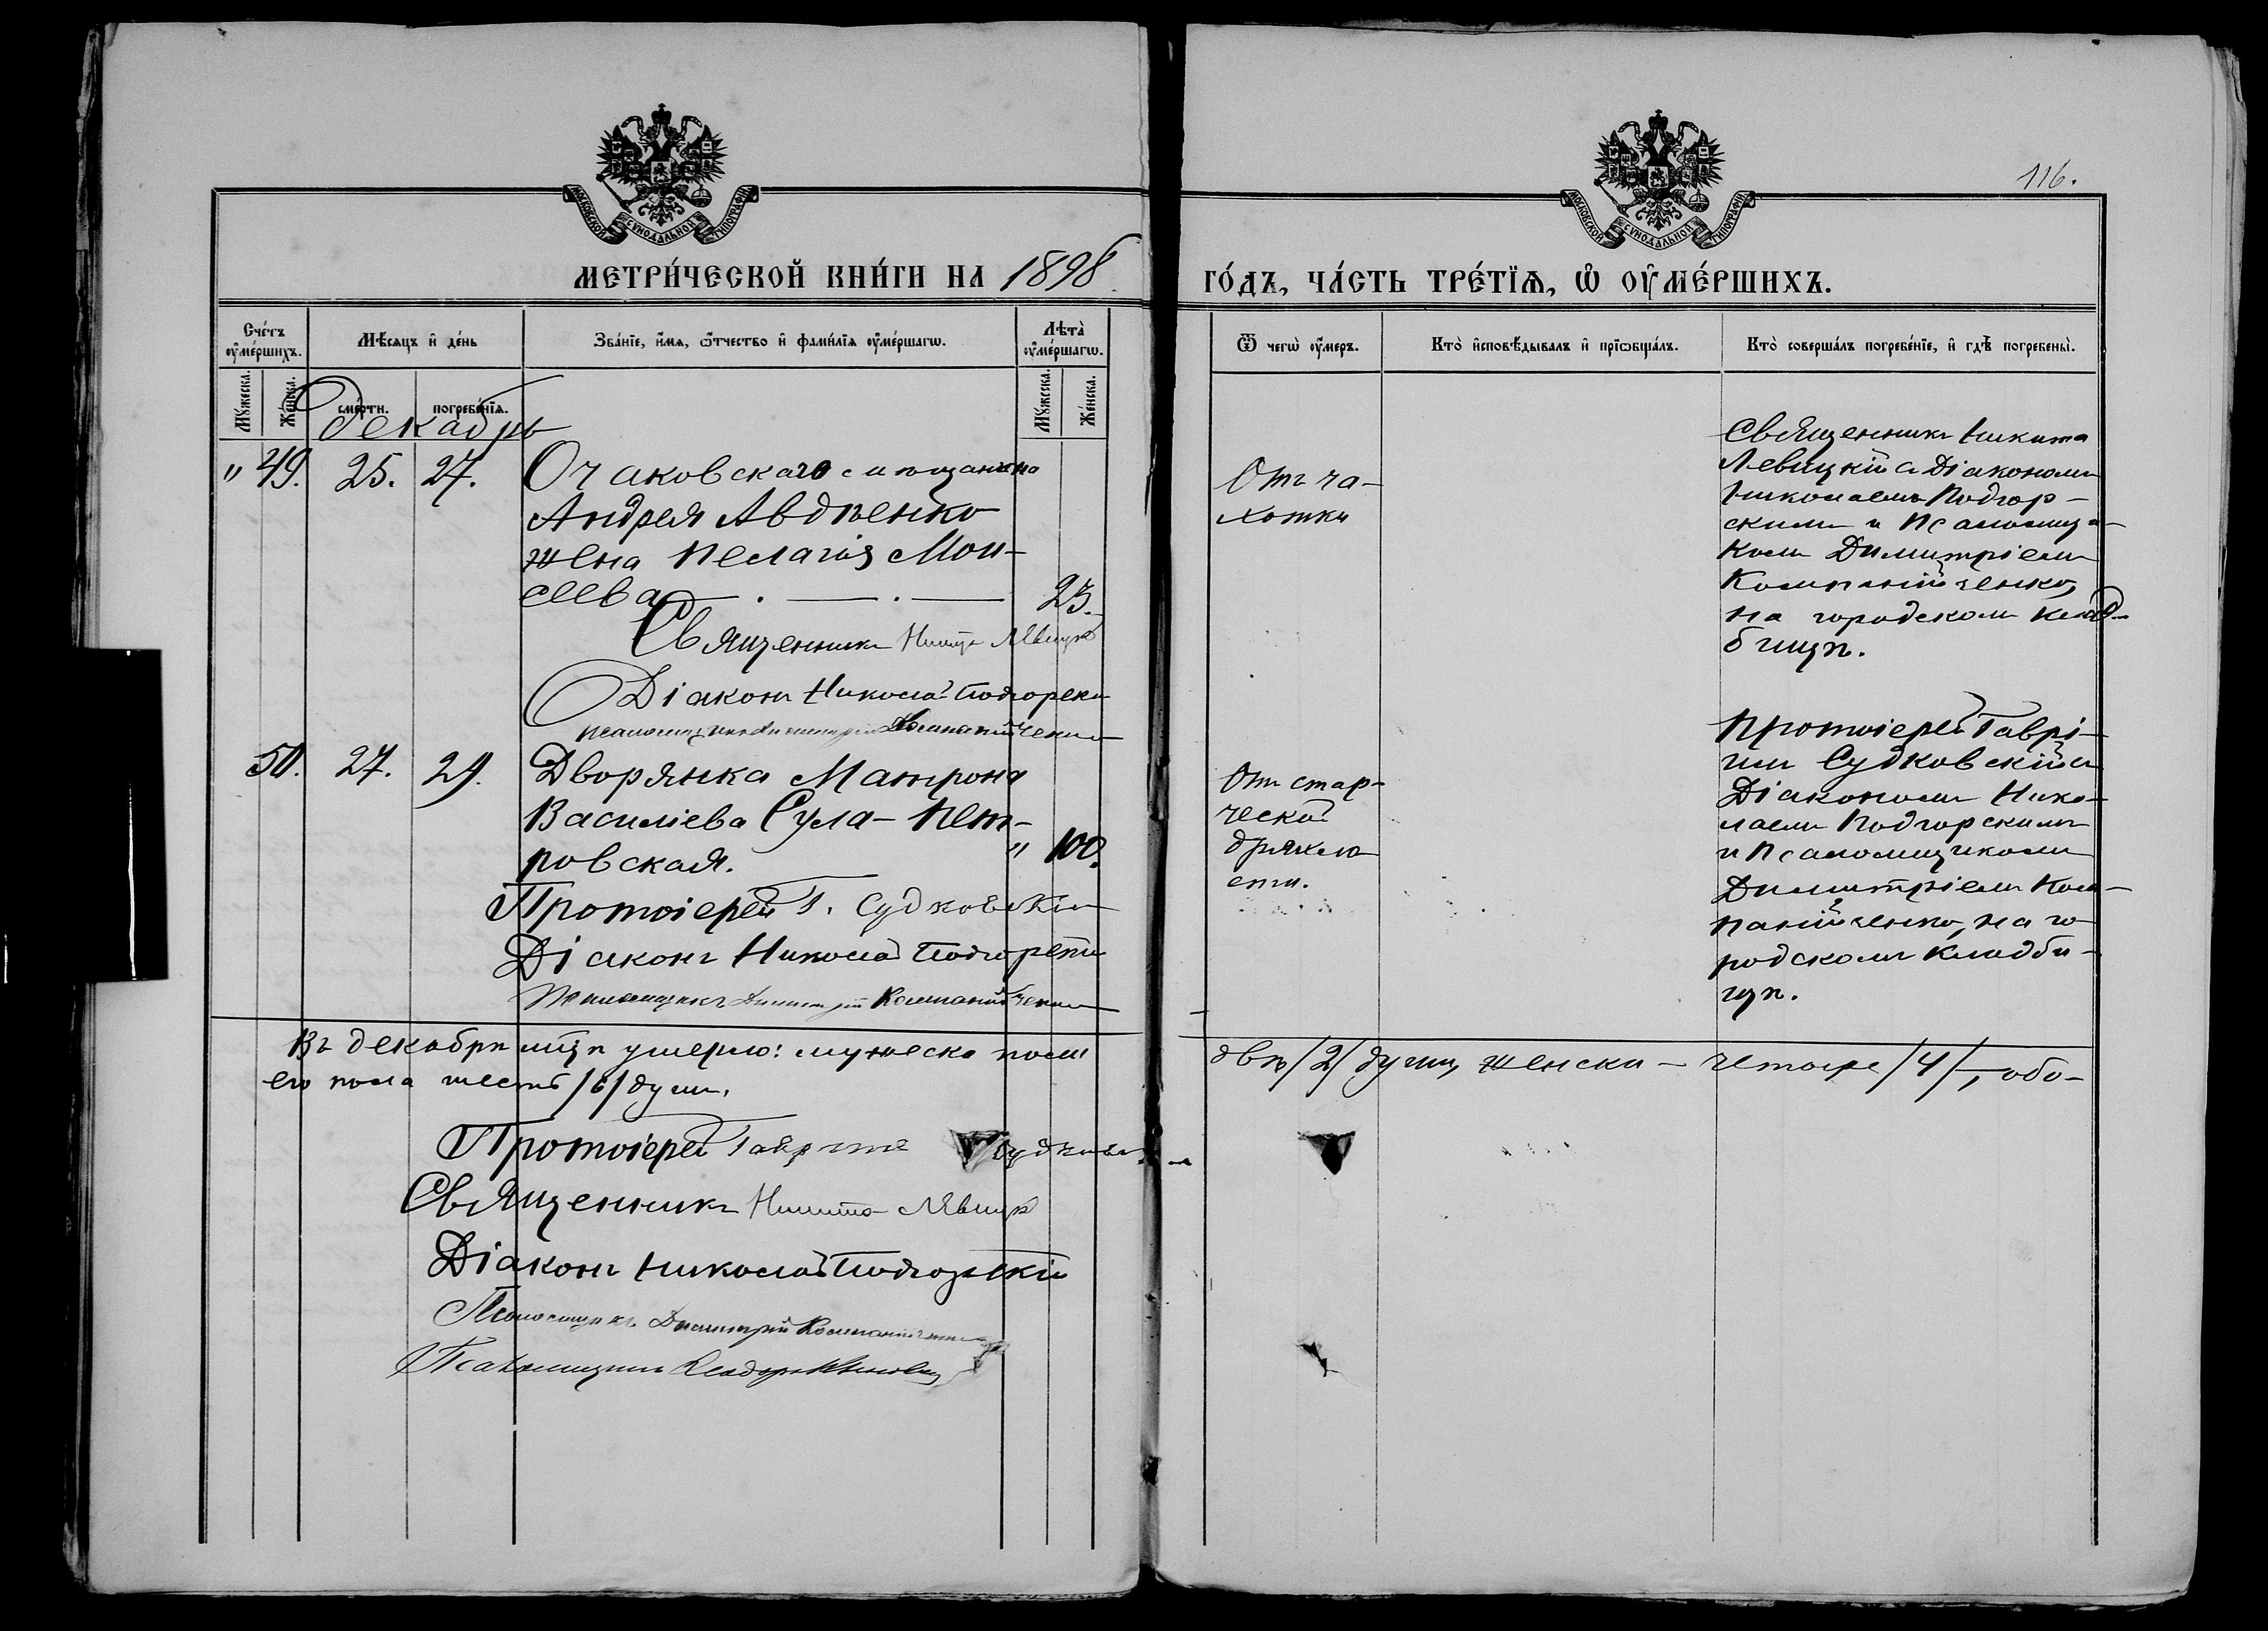 116.
МОСКОВСКОЙ СУНОДАЛЬНОЙ ТИПОГРАФІИ
МОСКОВСКОЙ СУНОДАЛЬНОЙ ТИПОГРАФІИ
МЕТРИ́ЧЕСКОЙ КНИ́ГИ НА 1898 ГО́ДЪ, ЧА́СТЬ ТРЕ́ТЇѦ, Ѡ҆ ОУ҆МЕ́РШИХЪ.
Сче́тъ оу҆ме́ршихъ.
Мꙋжеска.
Же́нска.
Мѣ́сяцъ и҆ де́нь
сме́рти.
погребе́нїѧ.
Зва́нїе, и҆́мѧ, ѻ҆́тчество и҆ фами́лїѧ оу҆ме́ршагѡ.
Лѣта̀ оу҆ме́ршагѡ.
Мꙋжеска.
Же́нска.
Ѿ чегѡ̀ оу҆́меръ.
Кто̀ и҆сповѣ́дывалъ и҆ прїѡбща́лъ.
Кто̀ соверша́лъ погребе́нїе, и҆ гдѣ̀ погребены̀.
Декабрь
" 49. 25. 27.
Очаковскаго мѣщанина
Андрея Авдѣенко
жена Пелагія Мои-
сеева — . — . — 23.
Священникъ Никита Левицкій
Діаконъ Николай Подгорскій
Псаломщикъ Димитрій Компанійченко
Отъ ча-
хотки
Священникъ Никита
Левицкій съ Діакономъ
Николаемъ Подгор-
скимъ и Псаломщи-
комъ Димитріемъ
Компанійченко,
на городскомъ клад-
бищѣ.
50. 27. 29.
Дворянка Матрона
Василіева Сула-Пет-
ровская. " 100.
Протоіерей Г. Судковскій
Діаконъ Николай Подгорскій
Псаломщикъ Димитрій Компанійченко
Отъ стар-
ческой
дряхло
сти.
Протоіерей Гаврі-
илъ Судковскій съ
Діакономъ Нико-
лаемъ Подгорскимъ
и Псаломщикомъ
Димитріемъ Ком-
панійченко, на го-
родскомъ кладби-
щѣ.
Въ декабрѣ мцѣ умерло: мужеска пола двѣ /2/ души, женска — четыре /4/ —, обо-
его пола шесть /6/ душъ.
Протоіерей Гавріилъ Судковскій
Священникъ Никита Левицкій
Діаконъ Николай Подгорскій
Псаломщикъ Димитрій Компанійченко
Псаломщикъ